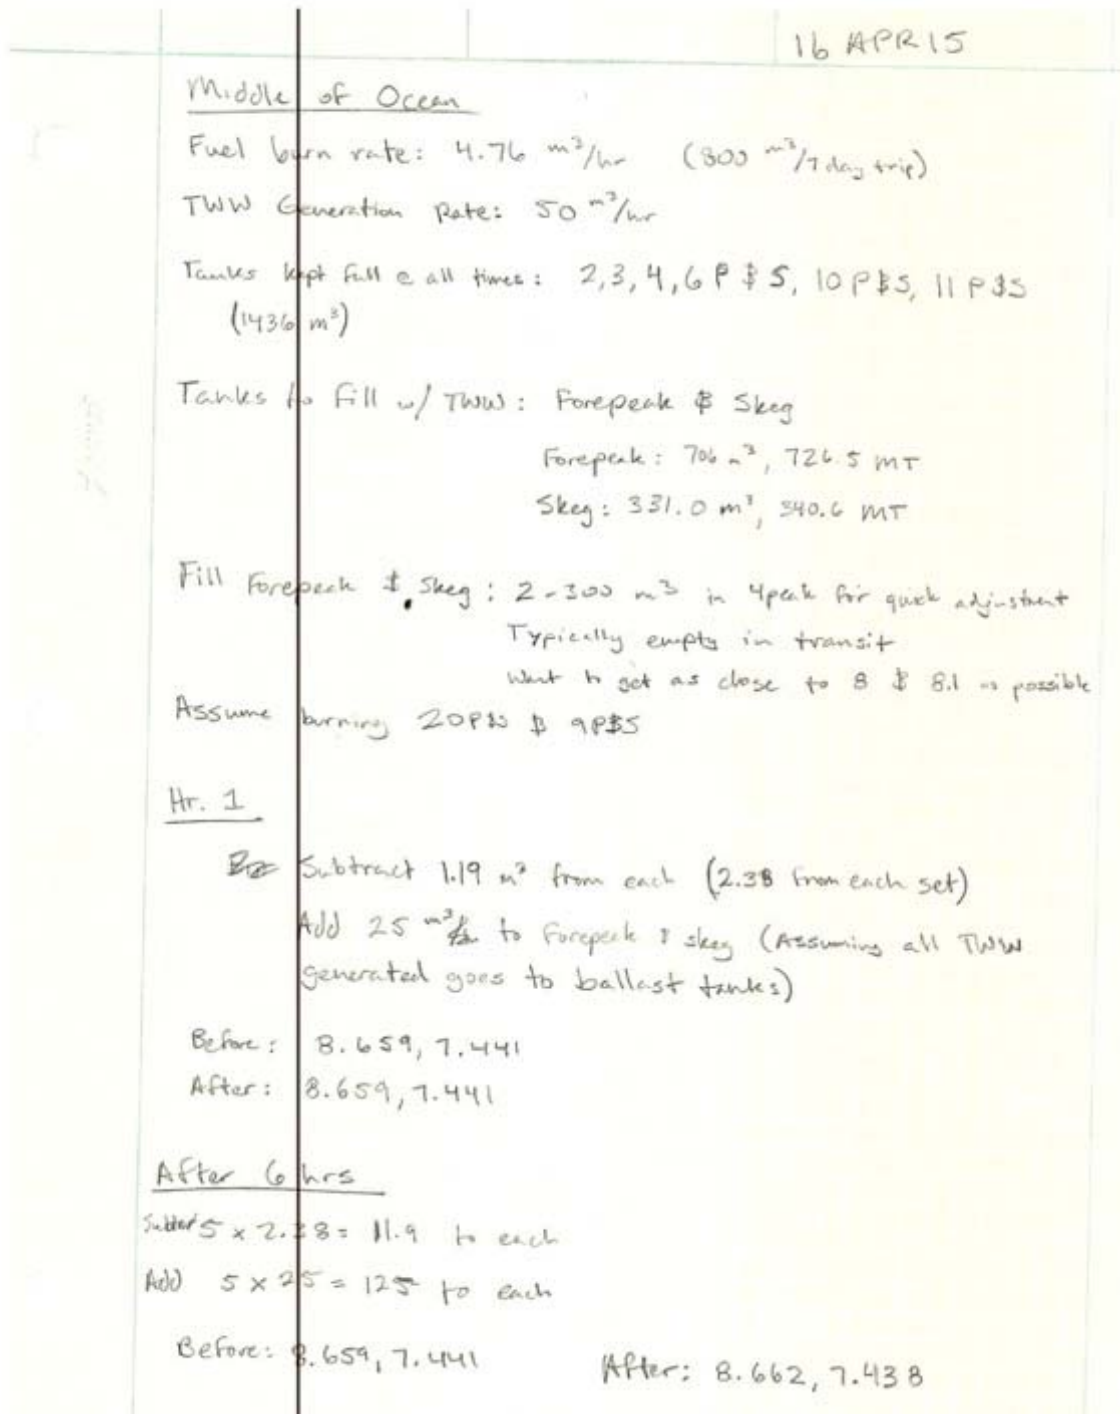 16 APR 15
Middle of Ocean
Fuel burn rate: 4.76 m³/hr (800 m³/7 day trip)
TWW Generation Rate: 50 m³/hr
Tanks kept full @ all times: 2,3,4,6 P & S, 10 P&S, 11 P&S
(1436 m³)
Tanks to fill w/ TWW: Forepeak & Skeg
Forepeak: 706 m³, 726.5 MT
Skeg: 331.0 m³, 340.6 MT
Fill Forepeak & Skeg: 2-300 m³ in 4peak for quick adjustment
Typically empty in transit
Want to get as close to 8 & 8.1 as possible
Assume burning 20P&S & 9P&S
Hr. 1
Subtract 1.19 m³ from each (2.38 from each set)
Add 25 m³ to forepeak & skeg (Assuming all TWW
generated goes to ballast tanks)
Before: 8.659, 7.441
After: 8.659, 7.441
After 6 hrs
5 x 2.38 = 11.9 to each
Add 5 x 25 = 125 to each
Before: 8.659, 7.441 After: 8.662, 7.438